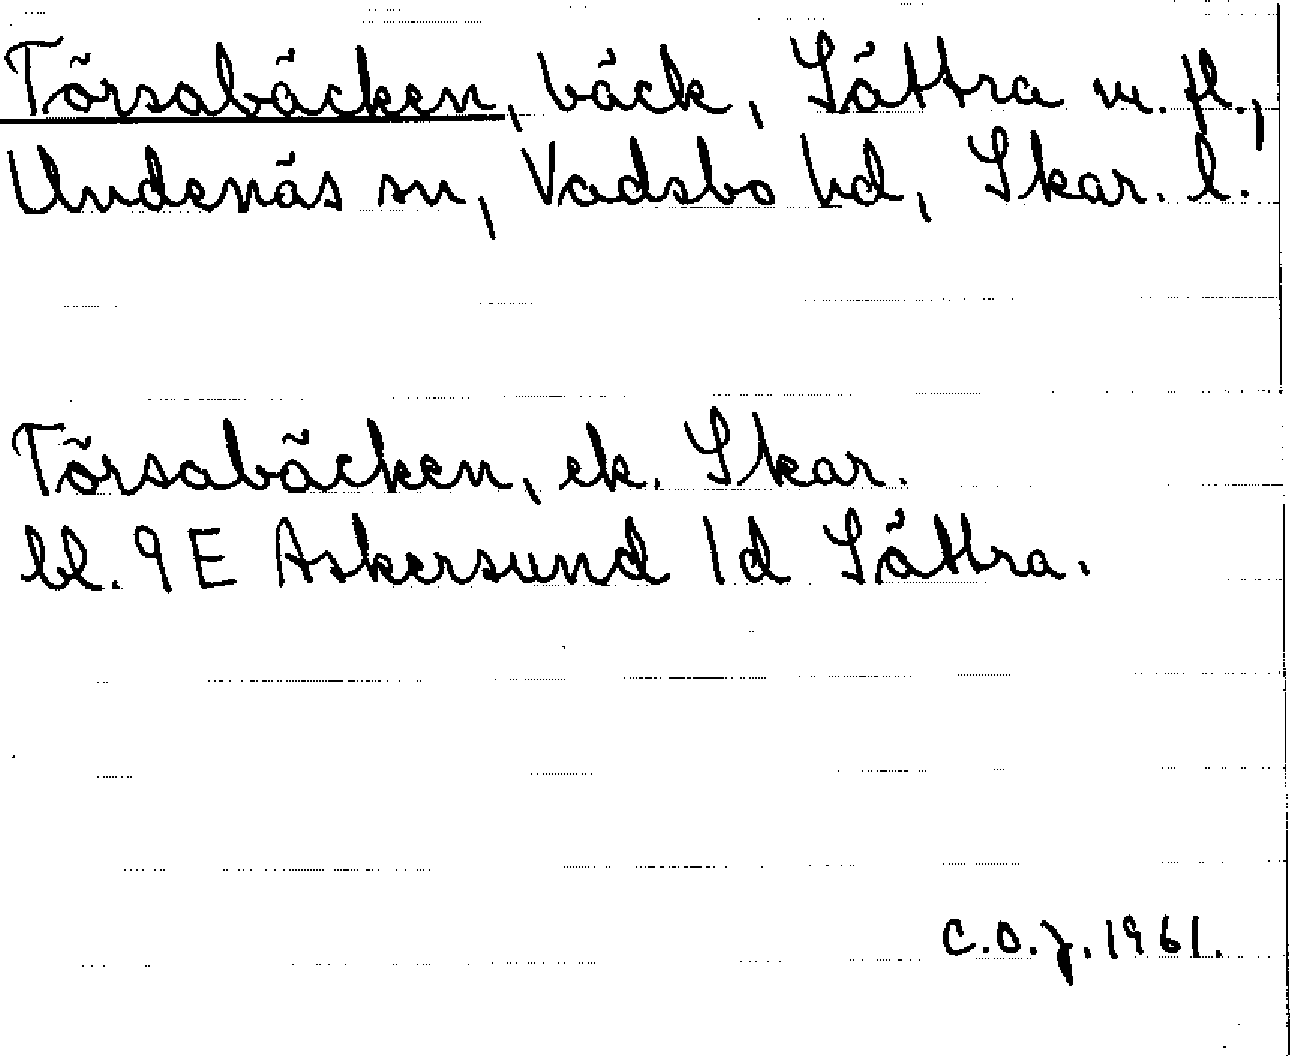 Törsabäcken, bäck, Sätra m. fl.,
Undenäs sn, Vadsbo hd, Skar. l.
Törsabäcken, ek. Skar.
bl. 9 E Askersund 1d Sätra.
C.O.J. 1961.